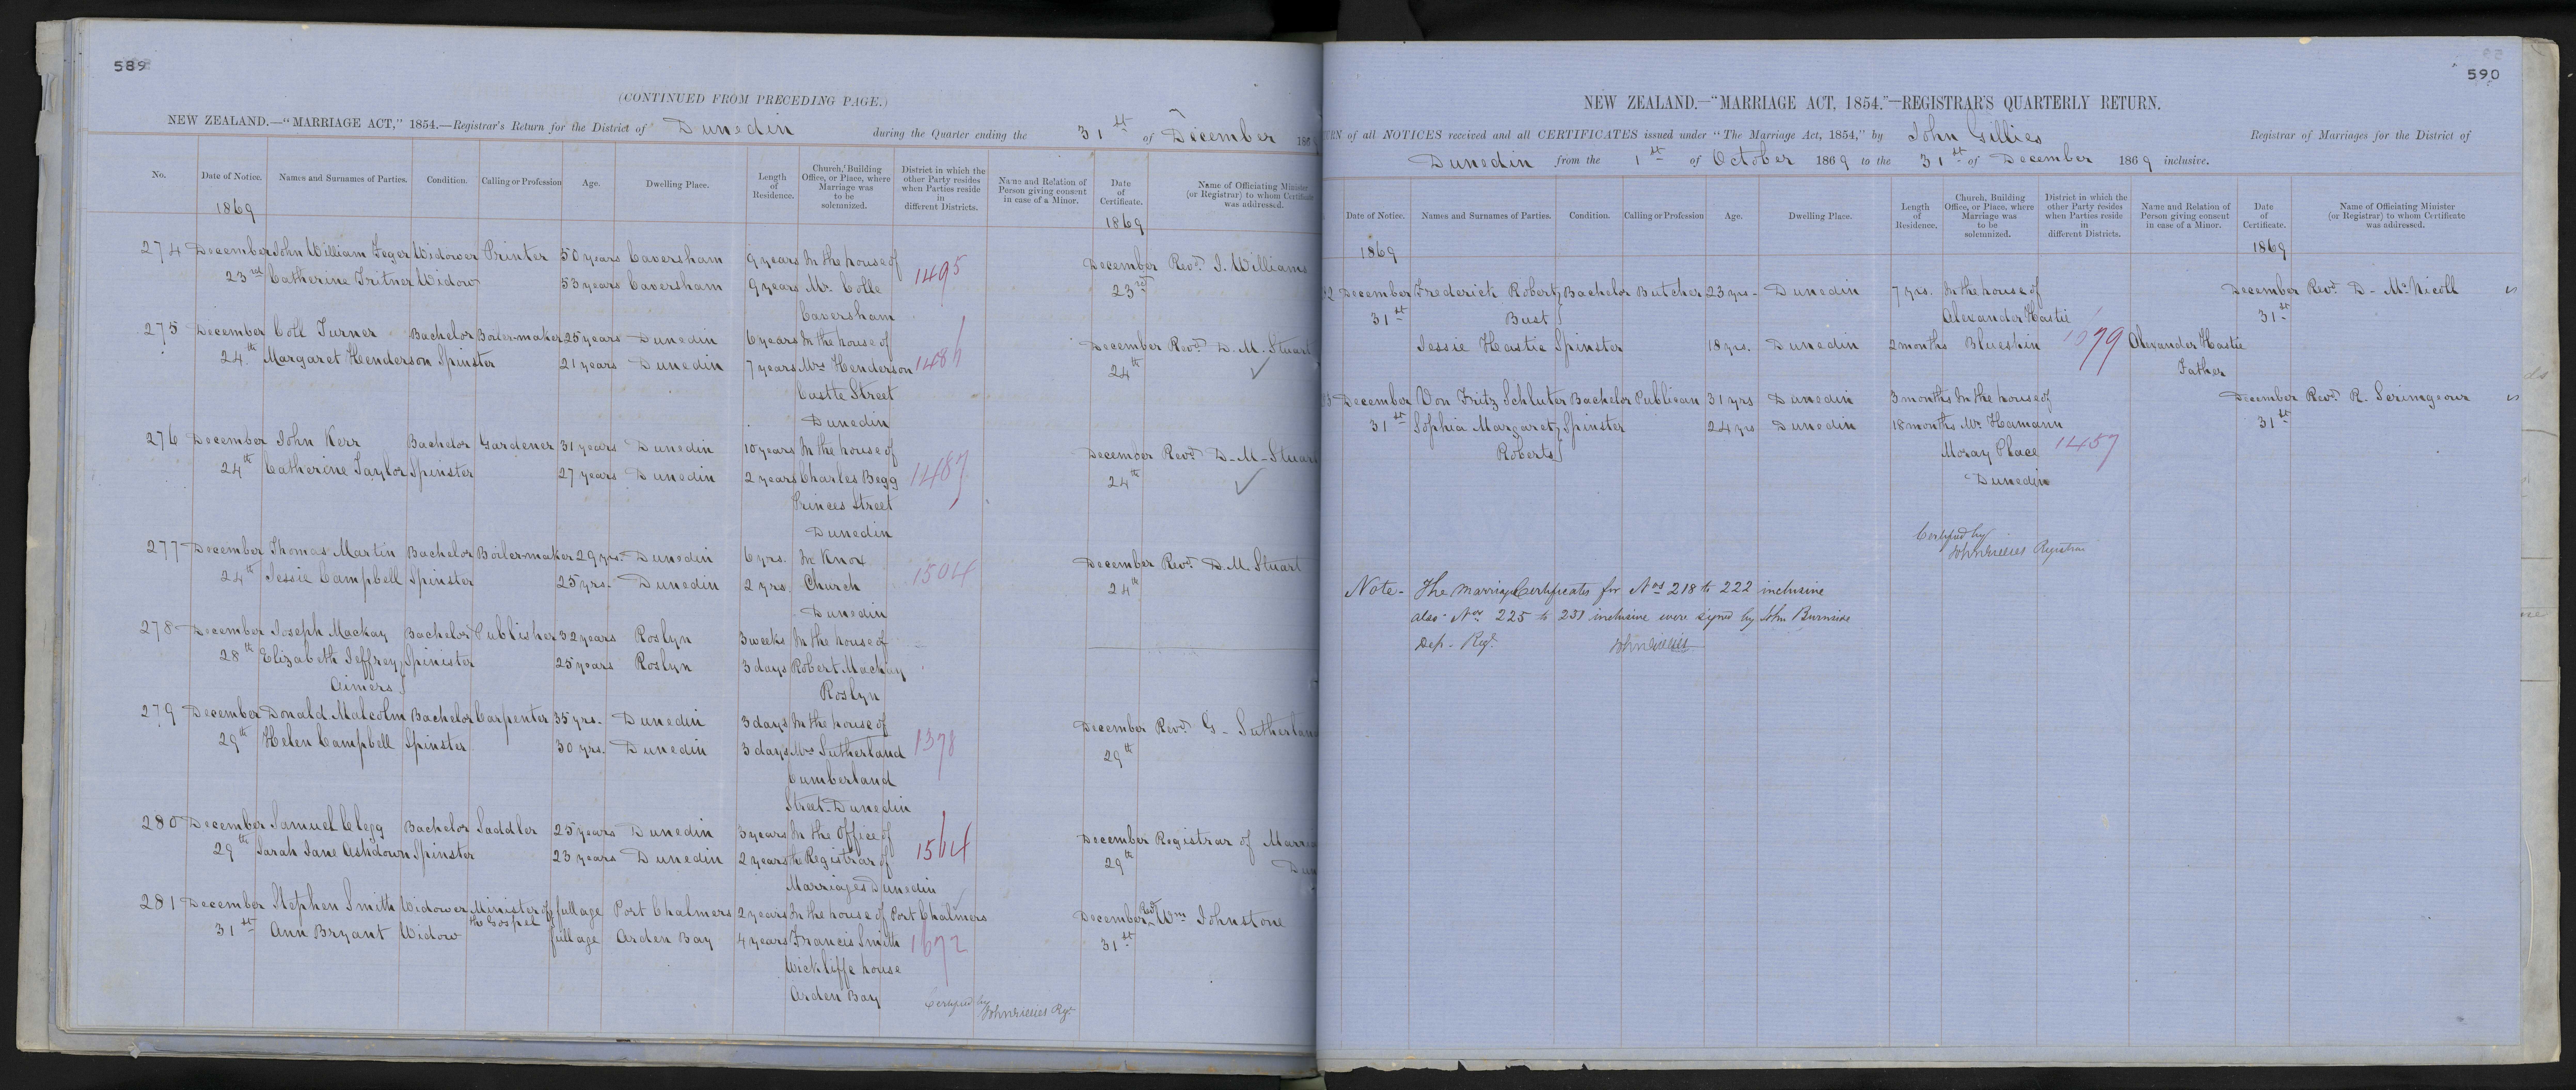 589
(CONTINUED FROM PRECEDING PAGE.)
NEW ZEALAND.—"MARRIAGE ACT," 1854.—Registrar's Return for the District of Dunedin during the Quarter ending the 31st of December 186
No. Date of Notice. Names and Surnames of Parties. Condition. Calling or Profession Age. Dwelling Place. Length of Residence. Church, Building Office, or Place, where Marriage was to be solemnized. District in which the other Party resides when Parties reside in different Districts. Name and Relation of Person giving consent in case of a Minor. Date of Certificate. Name of Officiating Minister (or Registrar) to whom Certificate was addressed.
1869 1869
274 December John William Feger Widower Printer 50 years Caversham 9 years In the house of 1495 December Revd. J. Williams
23rd Catherine Fritner Widow 53 years Caversham 9 years Mr. Colle 23rd
Caversham
275 December Coll Turner Bachelor Boiler-maker 25 years Dunedin 6 years In the house of December Revd. D. M. Stuart
24th Margaret Henderson Spinster 21 years Dunedin 7 years Mrs Henderson 1486 24th
Castle Street
Dunedin
276 December John Kerr Bachelor Gardener 31 years Dunedin 10 years In the house of December Revd. D. M. Stuart
24th Catherine Taylor Spinster 27 years Dunedin 2 years Charles Begg 1487 24th
Princes Street
Dunedin
277 December Thomas Martin Bachelor Boiler-maker 29 yrs. Dunedin 6 yrs. In Knox December Revd. D. M. Stuart
24th Jessie Campbell Spinster 25 yrs. Dunedin 2 yrs. Church 1504 24th
Dunedin
278 December Joseph Mackay Bachelor Publisher 32 years Roslyn 3 weeks In the house of
28th Elizabeth Jeffrey Spinister 25 years Roslyn 3 days Robert Mackay
Aimers Roslyn
279 December Donald Malcolm Bachelor Carpenter 35 yrs. Dunedin 3 days In the house of December Revd. G. Sutherland
29th Helen Campbell Spinster 30 yrs. Dunedin 3 days Mrs Sutherland 1378 29th
Cumberland
Street. Dunedin
280 December Samuel Clegg Bachelor Saddler 25 years Dunedin 3 years In the Office of December Registrar of
29th Sarah Jane Ashdown Spinster 23 years Dunedin 2 years the Registrar of 1564 29th
Marriages Dunedin
281 December Stephen Smith Widower Minister of full age Port Chalmers 2 years In the house of Port Chalmers December Revd. Wm Johnstone
the Gospel
31st Ann Bryant Widow full age Arden Bay 4 years Francis Smith 1672 31st
Wickliffe house
Arden Bay
Certified by
John Gillies Regr
590
NEW ZEALAND.—"MARRIAGE ACT, 1854."—REGISTRAR'S QUARTERLY RETURN.
of all NOTICES received and all CERTIFICATES issued under "The Marriage Act, 1854," by John Gillies Registrar of Marriages for the District of
Dunedin from the 1st of October 1869 to the 31st of December 1869 inclusive.
Date of Notice. Names and Surnames of Parties. Condition. Calling or Profession Age. Dwelling Place. Length of Residence. Church, Building Office, or Place, where Marriage was to be solemnized. District in which the other Party resides when Parties reside in different Districts. Name and Relation of Person giving consent in case of a Minor. Date of Certificate. Name of Officiating Minister (or Registrar) to whom Certificate was addressed.
1869 1869
2 December Frederick Robert Bachelor Butcher 23 yrs. Dunedin 7 yrs. In the house of December Revd. D. McNicoll
31st Bust Alexander Hastie 31st
Jessie Hastie Spinster 18 yrs. Dunedin 2 months Blueskin Alexander Hastie
Father
3 December Von Fritz Schluter Bachelor Publican 31 yrs Dunedin 3 months In the house of December Revd. R. Scrimgeour
31st Sophia Margaret Spinster 24 yrs Dunedin 18 months Mr. Hamann 31st
Roberts Moray Place 1457
Dunedin
Certified by
John Gillies Registrar
Note - The Marriage Certificates for Nos 218 to 222 inclusive
also Nos 225 to 231 inclusive were signed by John Burnside
Dep. Regr. John Gillies